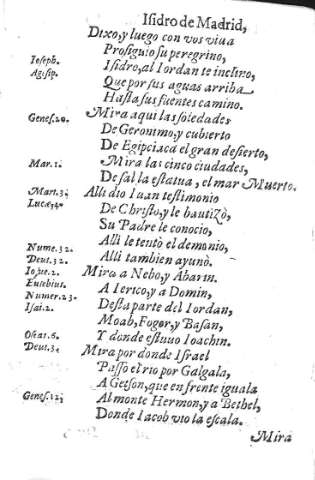 Isidro de Madrid,
Dixo, y luego con vos viua
Prosiguio su peregrino,
Ioseph. Isidro, al Iordan te inclino,
Agisip.
Que por sus aguas arriba
Hasta sus fuentes camino.
Genes. 20. Mira aqui las soledades
De Geronimo, y cubierto
De Egipciaca el gran desierto,
Mar. 1. Mira las cinco ciudades,
De sal la estatua, el mar Muerto.
Mart. 3. Alli dio Iuan testimonio
Lucæ, De Christo, y le bautizò,
Su Padre le conocio,
Nume. 32. Alli le tentò el demonio,
Deut. 32. Alli tambien ayunò.
Iosue. 2. Mira a Nebo, y Abarin.
Eusebius. A Ierico, y a Domin,
Numer. 23. Desta parte del Iordan,
Isai. 2.
Moab, Fogor, y Basan,
Oseas. 6. Y donde estuuo Ioachin.
Deut. 3. Mira por donde Israel
Passò el rio por Galgala,
A Getson, que en frente iguala
Genes. 12. Al monte Hermon, y a Bethel,
Donde Iacob vio la escala.
Mira